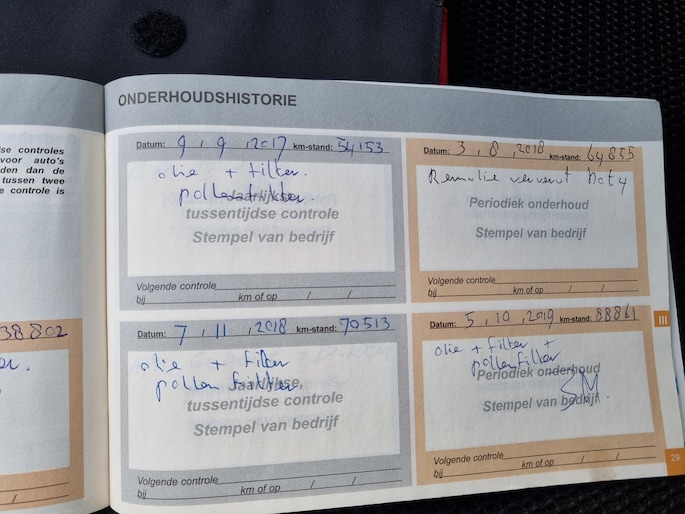 se controles
voor auto's
den dan de
tussen twee
e controle is
38802
ONDERHOUDSHISTORIE
Datum: 9, 9, 2017 km-stand: 54153
olie + filter.
pollenfilter.
Jaarlijkse
tussentijdse controle
Stempel van bedrijf
Volgende controle
bij km of op / /
Datum: 3, 8, 2018 km-stand: 64855
Remolie ververst
Periodiek onderhoud
Stempel van bedrijf
Volgende controle
bij km of op / /
Datum: 7, 11, 2018 km-stand: 70513
olie + filter
pollen filter
Jaarlijkse,
tussentijdse controle
Stempel van bedrijf
Volgende controle
bij km of op / /
Datum: 5, 10, 2019 km-stand: 88861
olie + filter +
pollenfilter
Periodiek onderhoud
Stempel van bedrijf
Volgende controle
bij km of op / /
III
29